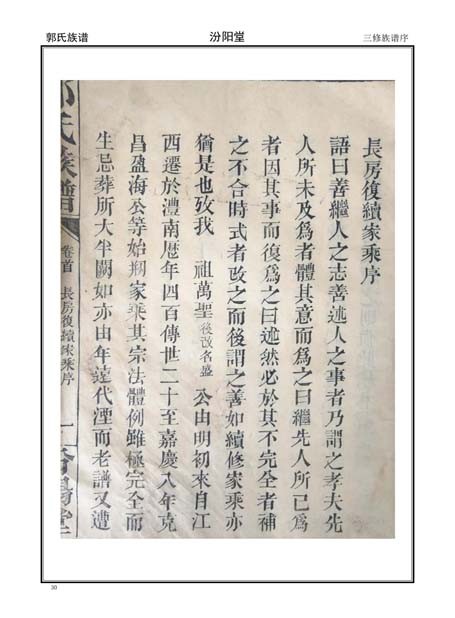 郭氏族谱
汾阳堂
三修族谱序
長房復續家乘序
語曰善繼人之志善述人之事者乃謂之孝夫先
人所未及為者體其意而為之曰繼先人所已為
者因其事而復為之曰述然必於其不完全者補
之不合時式者改之而後謂之善如續修家乘亦
猶是也攷我 祖萬聖後改名盛 公由明初來自江
西遷於澧南歷年四百傳世二十至嘉慶八年克
昌盈海公等始刱家乘其宗法體例雖極完全而
生忌葬所大半闕如亦由年遠代湮而老譜又遭
氏族譜
卷首 長房復續家乘序
一
30